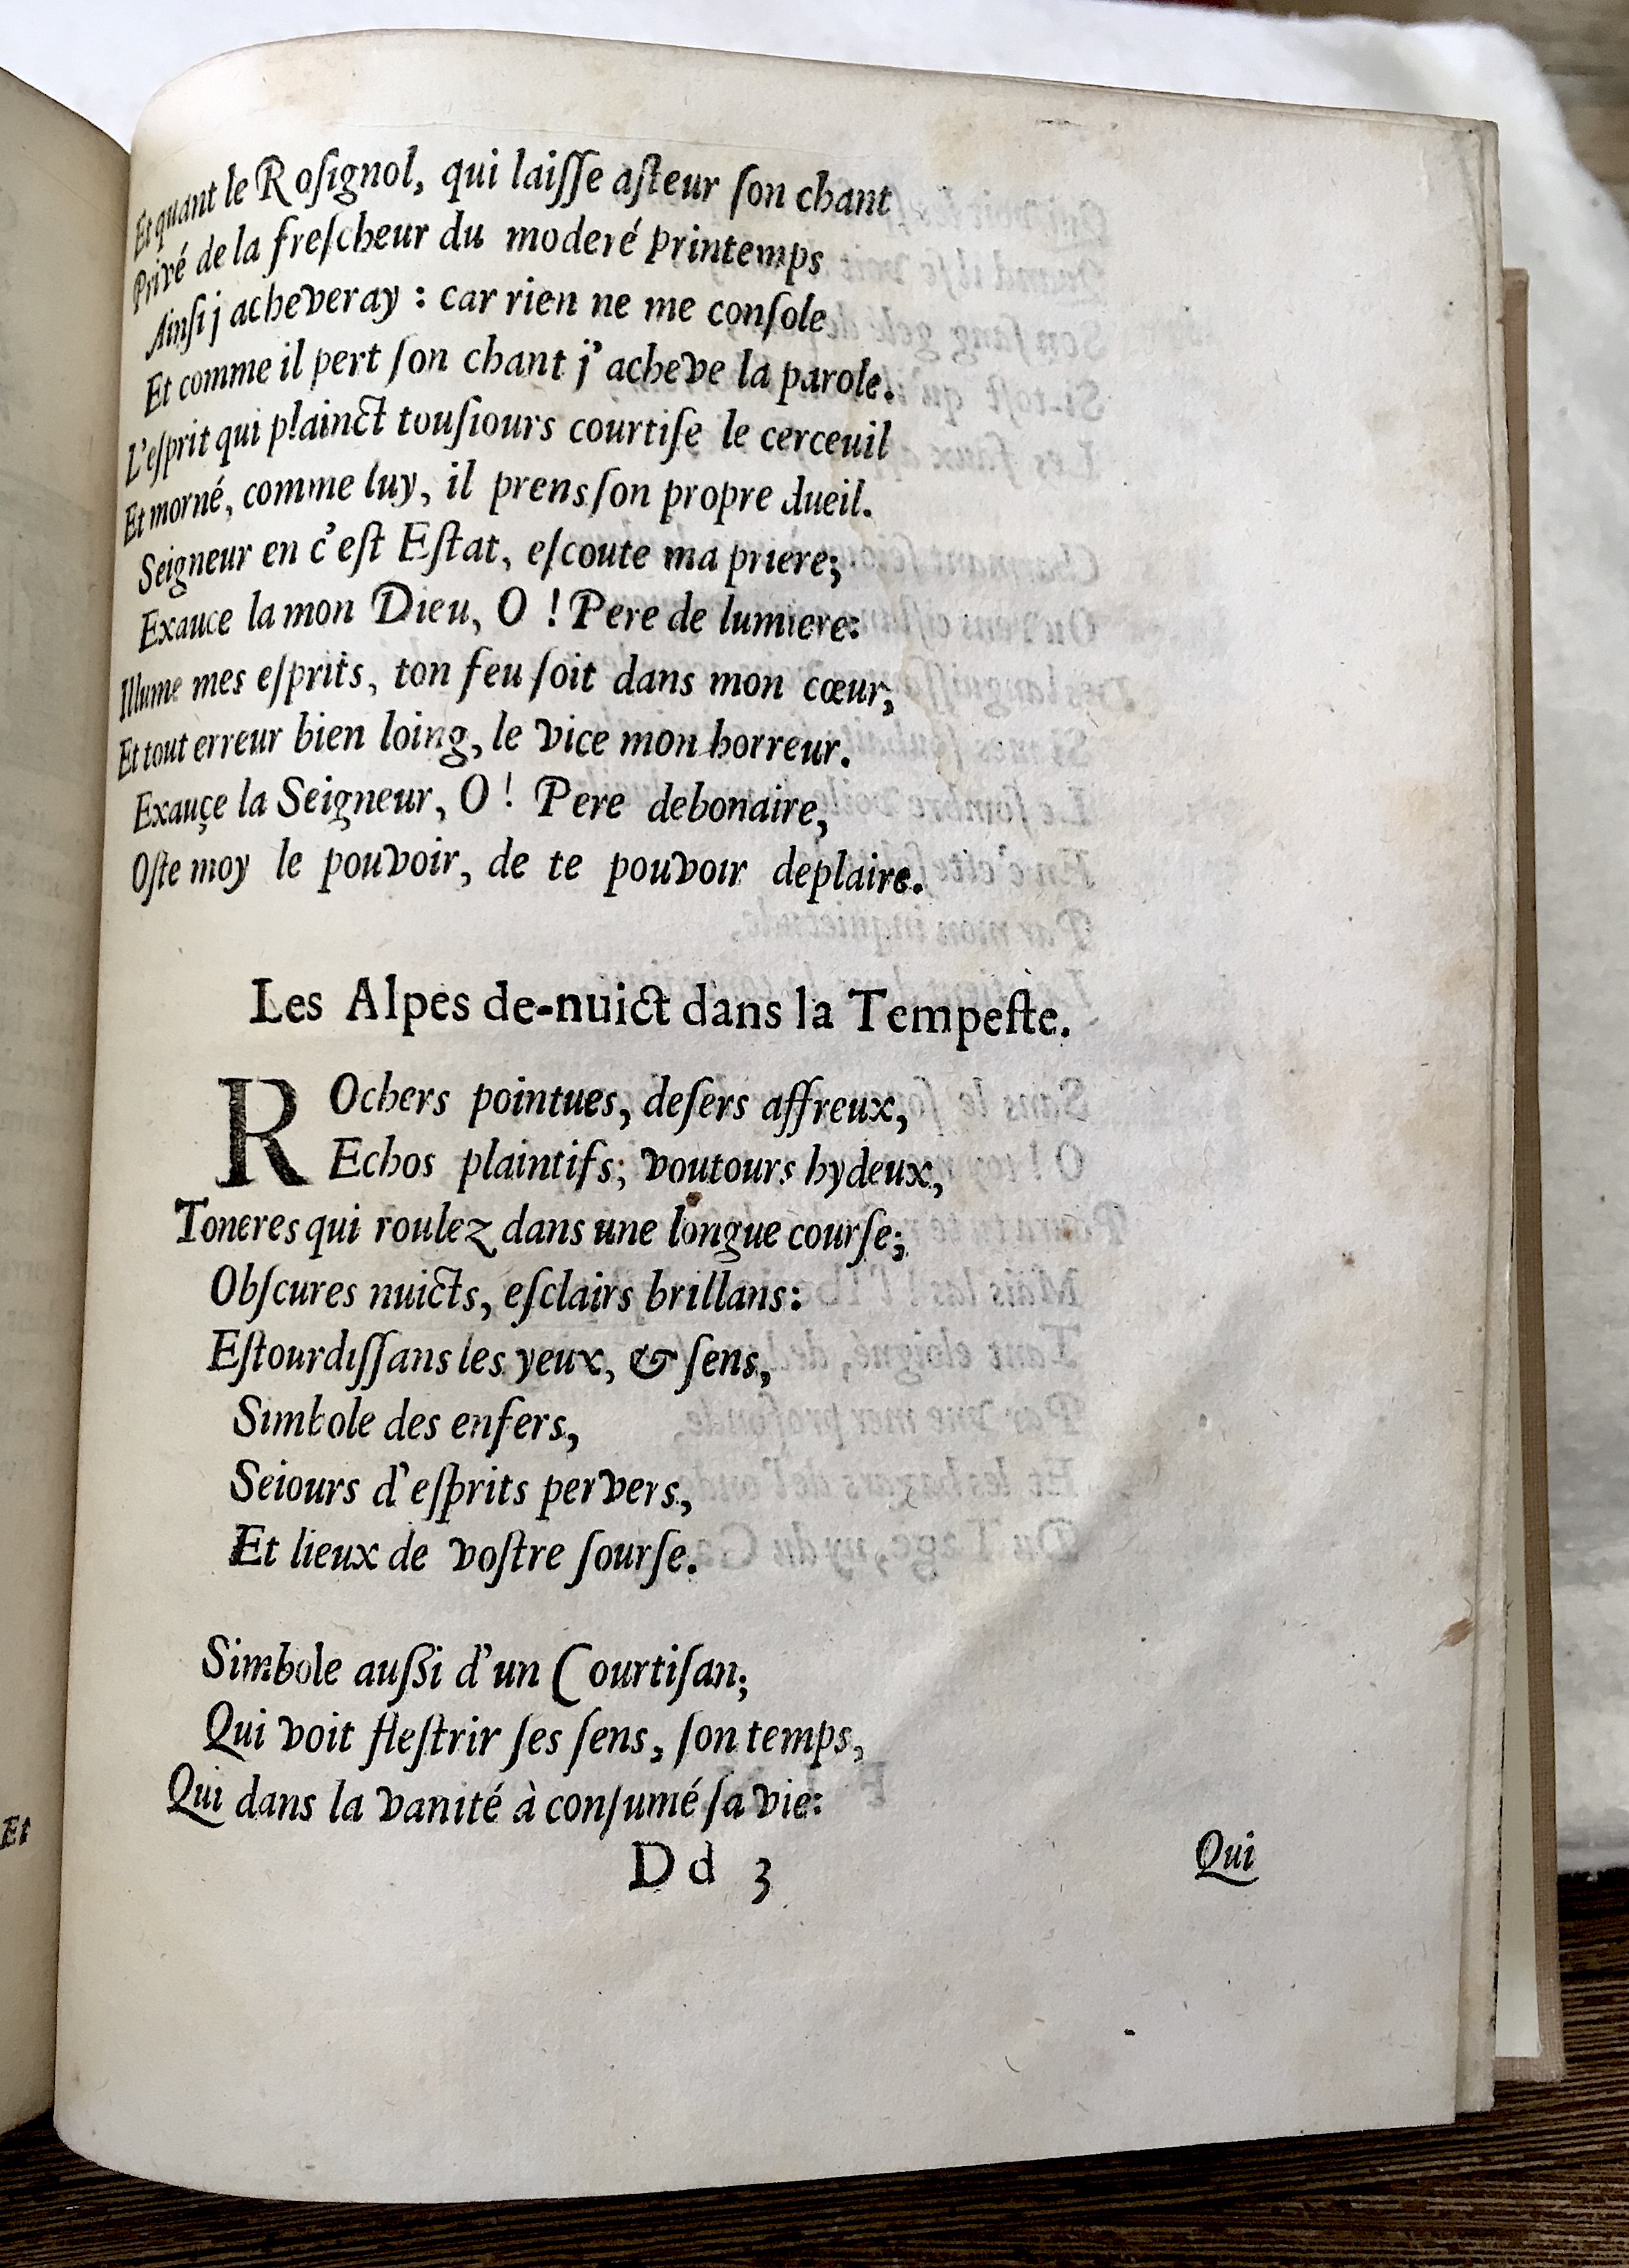 Et quant le Rosignol, qui laisse asteur son chant
Privé de la frescheur du moderé printemps
Ainsi j acheveray : car rien ne me console
Et comme il pert son chant j'acheve la parole.
L'esprit qui plainct tousiours courtise le cerceuil
Et morné, comme luy, il prens son propre dueil.
Seigneur en c'est Estat, escoute ma priere;
Exauce la mon Dieu, O ! Pere de lumiere:
Illume mes esprits, ton feu soit dans mon cœur;
Et tout erreur bien loing, le vice mon horreur.
Exauçe la Seigneur, O ! Pere debonaire,
Oste moy le pouvoir, de te pouvoir deplaire.
Les Alpes de-nuict dans la Tempeste.
ROchers pointues, desers affreux,
Echos plaintifs; voutours hydeux,
Toneres qui roulez dans une longue course;
Obscures nuicts, esclairs brillans:
Estourdissans les yeux, & sens,
Simbole des enfers,
Seiours d'esprits pervers,
Et lieux de vostre sourse.
Simbole aussi d'un Courtisan;
Qui voit flestrir ses sens, son temps,
Qui dans la vanité à consumé sa vie:
Dd 3
Qui
Et